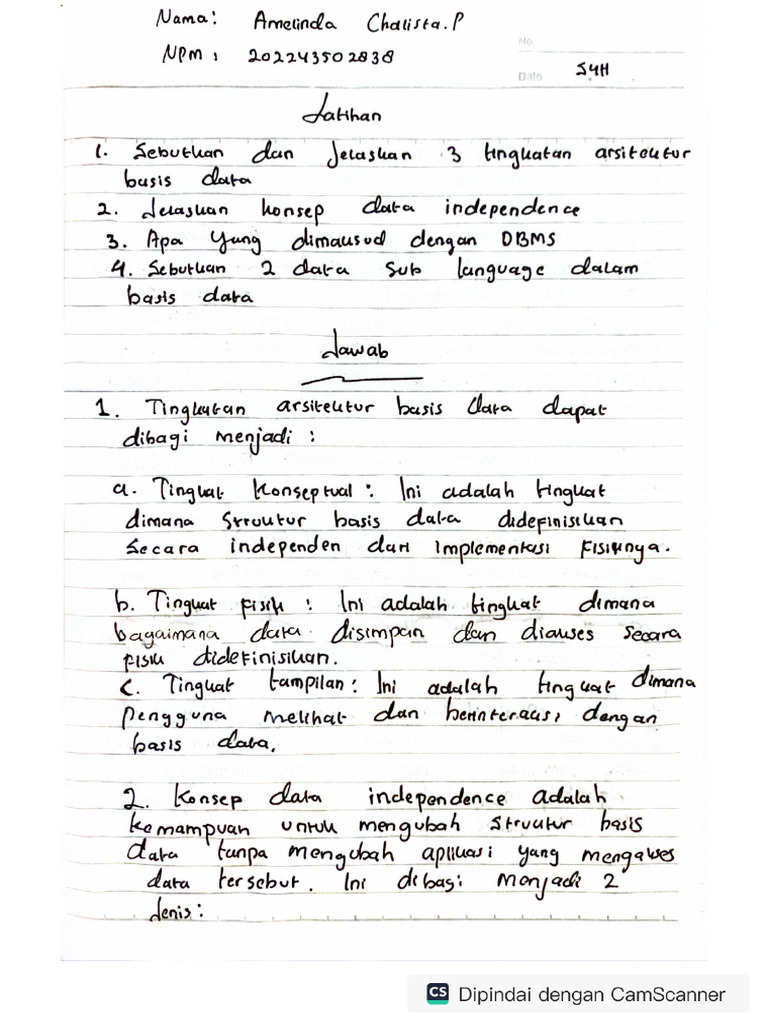 Nama: Amelinda Chalista.P
NPM : 202243502838
No.
Date S4H
Latihan
1. Sebutkan dan Jelaskan 3 tingkatan arsitektur
basis data
2. Jelaskan konsep data independence
3. Apa yang dimaksud dengan DBMS
4. Sebutkan 2 data sub language dalam
basis data
Jawab
1. Tingkatan arsitektur basis data dapat
dibagi menjadi :
a. Tingkat Konseptual : Ini adalah tingkat
dimana struktur basis data didefinisikan
secara independen dari implementasi fisiknya.
b. Tingkat fisik : Ini adalah tingkat dimana
bagaimana data disimpan dan diakses secara
fisik didefinisikan.
c. Tingkat tampilan : Ini adalah tingkat dimana
pengguna melihat dan berinteraksi dengan
basis data.
2. Konsep data independence adalah
kemampuan untuk mengubah struktur basis
data tanpa mengubah aplikasi yang mengakses
data tersebut. Ini dibagi menjadi 2
Jenis :
CS Dipindai dengan CamScanner